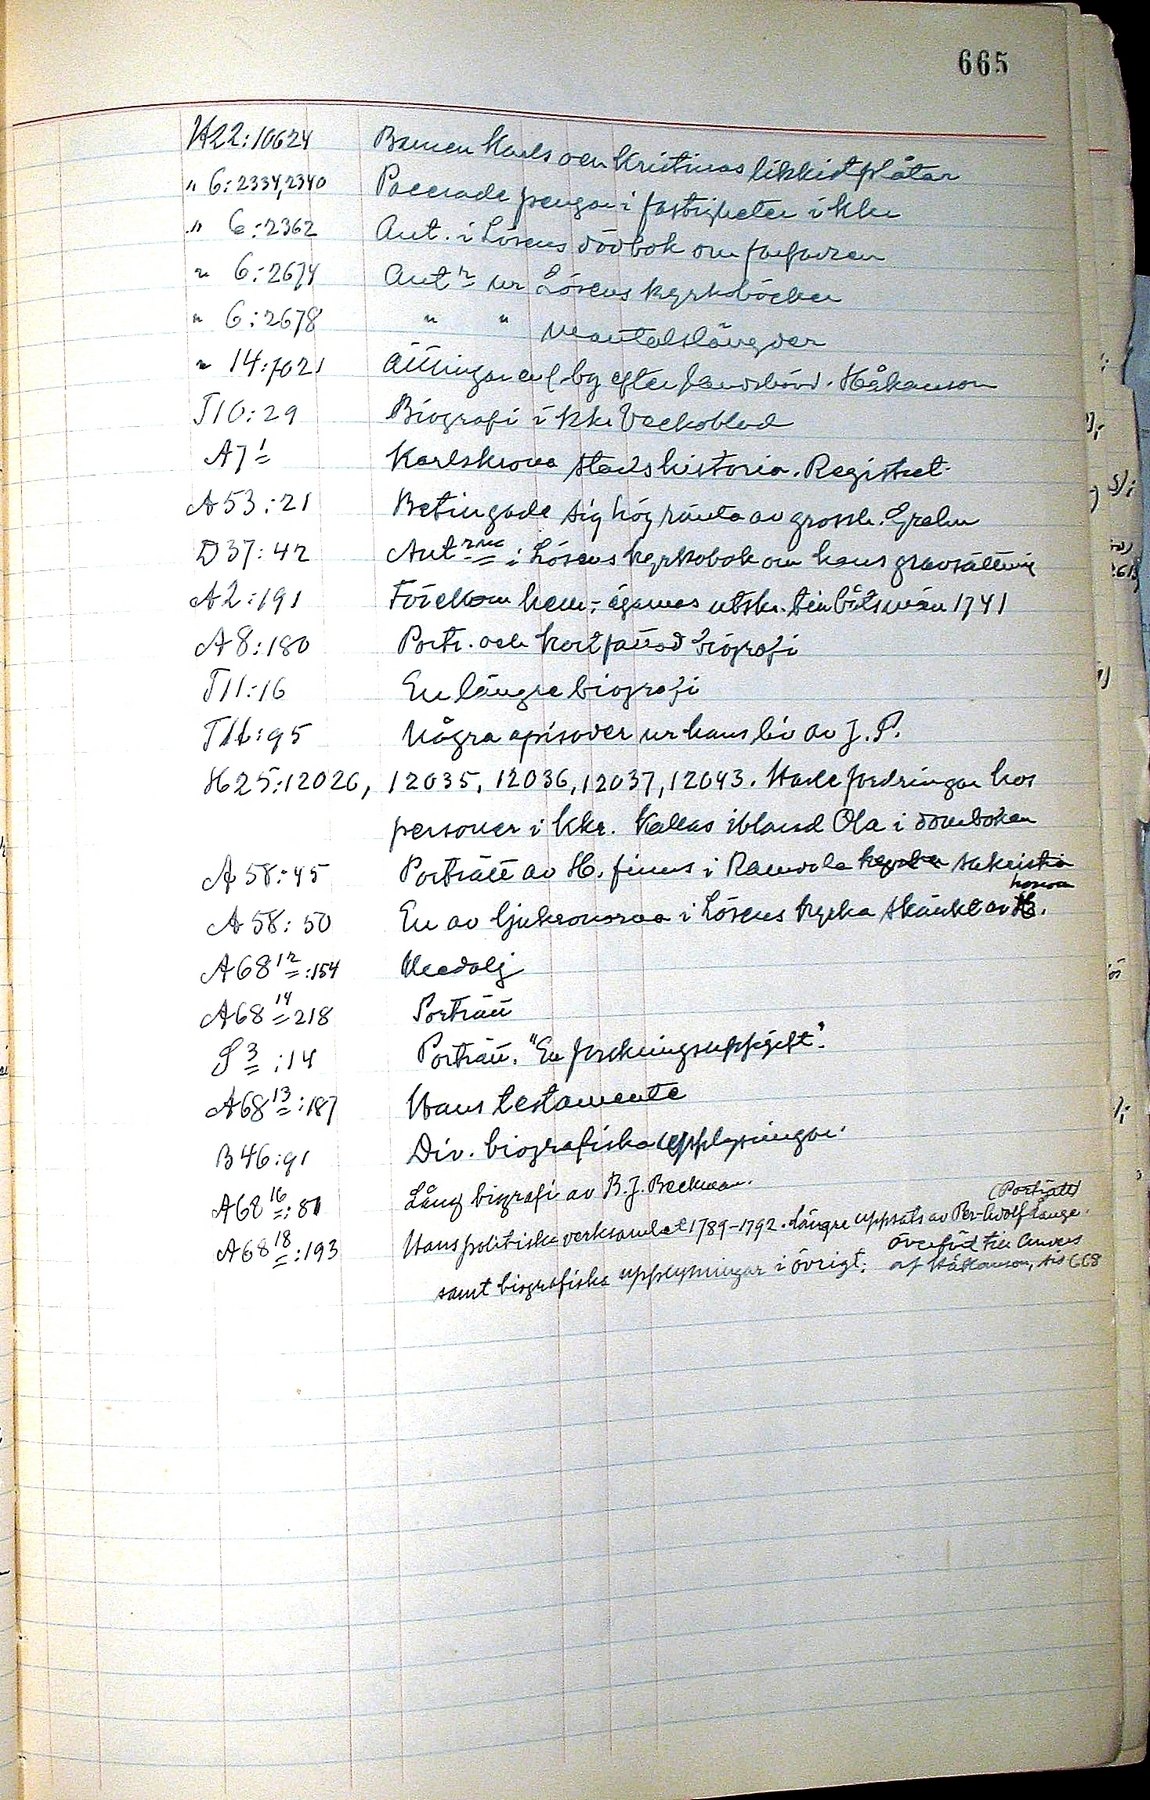 665
H22:10624 Barnen Karls och Kristinas likkistplåtar
" 6:2334,2340 Placerade pengar i fastigheter i Kkr
" 6:2362 Ant. i Lösens dödbok om farfadren
" 6:2674 Ant:r ur Lösens kyrkoböcker
" 6:2678 " " Mantalslängder
" 14:7021 Ättlingar enl. bg efter landshövd. Håkanson
T10:29 Biografi i Kkr Veckoblad
A7 1 Karlskrona stads historia. Registret.
A53:21 Betingade sig hög ränta av grossh. Grehn
D37:42 Ant:rna i Lösens kyrkobok om hans gravsättning
A2:191 Förekom hem:ägarnes utskr. till båtsmän 1741
A8:180 Portr. och kortfattad biografi
T11:16 En längre biografi
T11:95 Några episoder ur hans liv av J. P.
H25:12026, 12035, 12036, 12037, 12043. Hade fordringar hos
personer i Kkr. Kallas ibland Ola i domboken
A58:45 Porträtt av H. finns i Ramdala kyrka sakristia
A58:50 En av ljuskronorna i Lösens kyrka skänkt av H.
honom
A68 12:154 Medalj
A68 14 218 Porträtt
S 3:14 Porträtt. "En forskningsuppgift".
A68 13:187 Hans testamente
B46:91 Div. biografiska upplysningar.
A68 16:81 Lång biografi av B.J. Beckman.
(Porträtt)
A68 18:193 Hans politiska verksamhet 1789-1792. Längre uppsats av Per-Adolf Lange.
samt biografiska upplysningar i övrigt; överförd till Anders
af Håkanson, sid 668